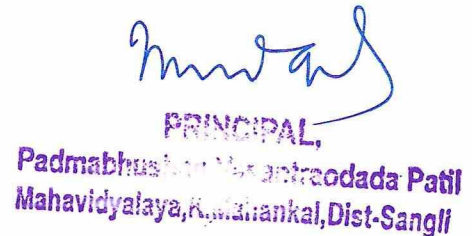 PRINCIPAL,
Padmabhushan Vasantraodada Patil
Mahavidyalaya,K.Mahankal,Dist-Sangli